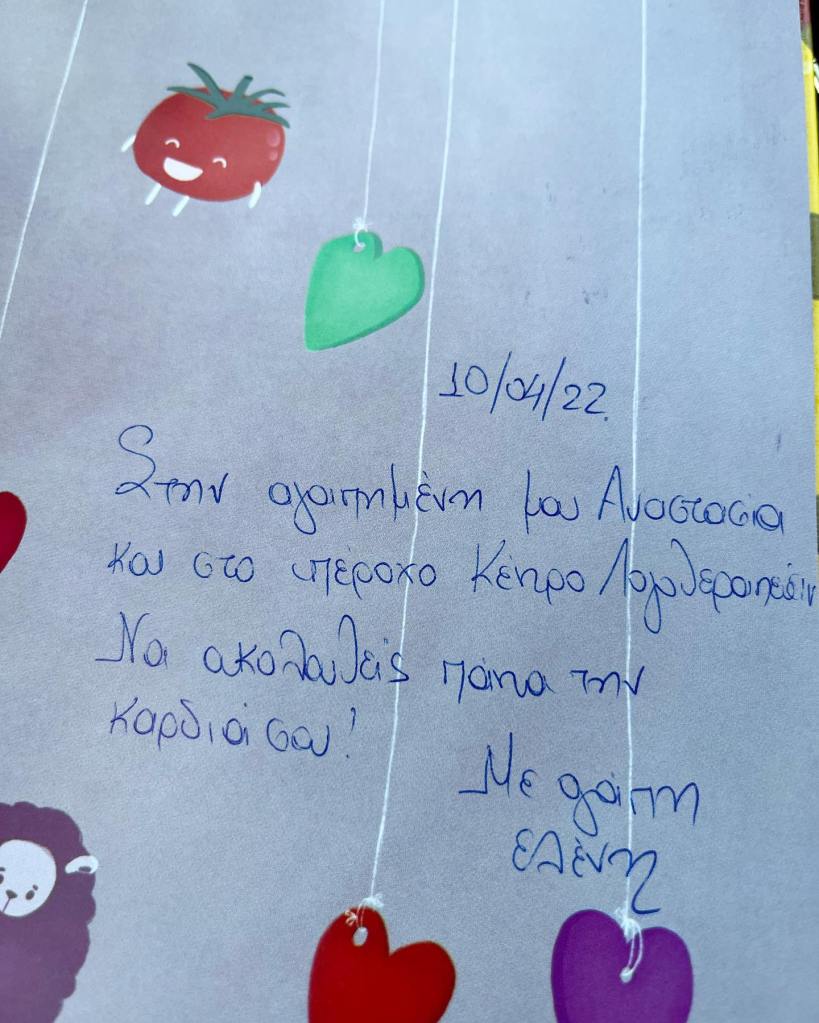 10/04/22
Στην αγαπημένη μου Αναστασία
και στο υπέροχο Κέντρο Λογοθεραπειών
Να ακολουθείς πάντα την
καρδιά σου!
Με αγάπη
Ελένη